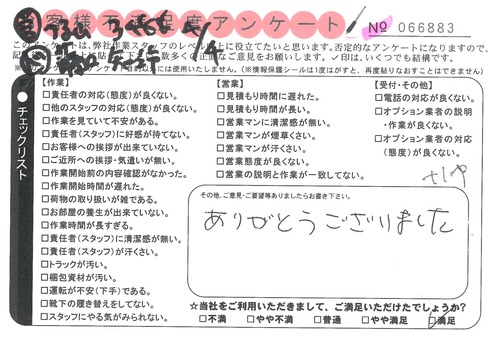 お客様不満足度アンケート
№ 066883
このアンケートは、弊社作業スタッフのレベル向上に役立てたいと思います。否定的なアンケートになりますので、
数多くの正直なご意見をお願いします。✓印は、いくつでも結構です。
には使用いたしません。(※情報保護シールは1度がはすと、再度貼りなおすことはできません)
チェックリスト
【作業】
□責任者の対応(態度)が良くない。
□他のスタッフの対応(態度)が良くない。
□作業を見ていて不安がある。
□責任者(スタッフ)に好感が持てない。
□お客様への挨拶が出来ていない。
□ご近所への挨拶・気遣いが無い。
□作業開始前の内容確認がなかった。
□作業開始時間が遅れた。
□荷物の取り扱いが雑である。
□お部屋の養生が出来ていない。
□作業時間が長すぎる。
□責任者(スタッフ)に清潔感が無い。
□責任者(スタッフ)が汗くさい。
□トラックが汚い。
□梱包資材が汚い。
□運転が不安(下手)である。
□靴下の履き替えをしてない。
□スタッフにやる気がみられない。
【営業】
□見積もり時間に遅れた。
□見積もり時間が長い。
□営業マンに清潔感が無い。
□営業マンが煙草くさい。
□営業マンが汗くさい。
□営業態度が良くない。
□営業の説明と作業が一致してない。
【受付・その他】
□電話の対応が良くない。
□オプション業者の説明
・作業が良くない。
□オプション業者の対応
(態度)が良くない。
その他、ご意見・ご要望等ありましたらお書き下さい。
ありがとうございました
☆当社をご利用いただきまして、ご満足いただけたでしょうか?
□不満 □やや不満 □普通 □やや満足 □満足